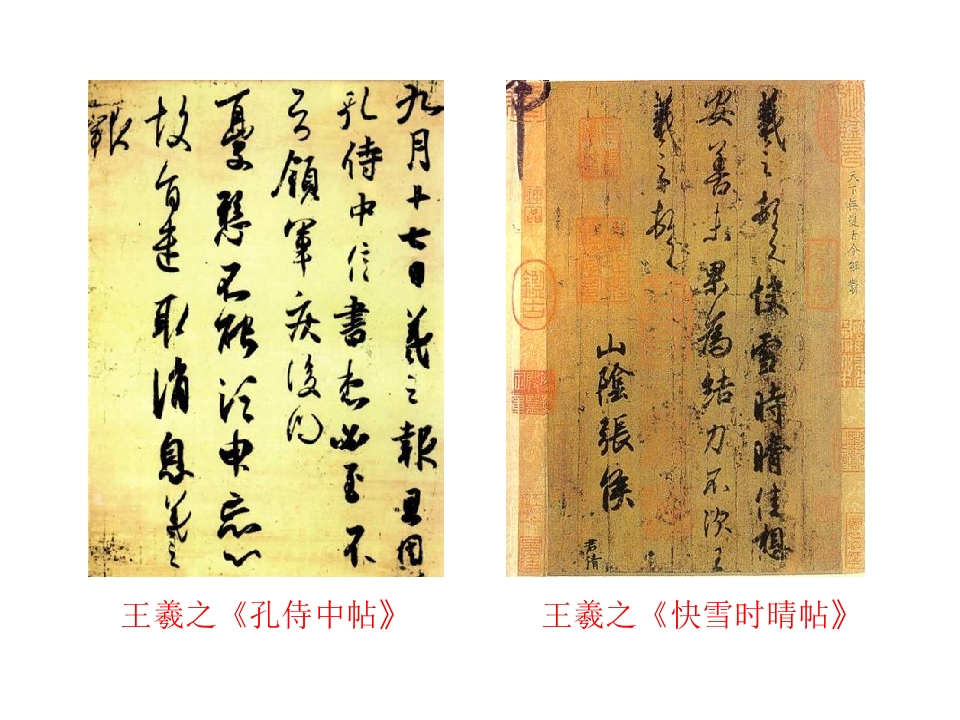 九月十七日羲之報且因
孔侍中信書想必至不
知領軍疾後問
憂懸不能須臾忘心
故旨遣取消息羲之
報
天下無雙古今鮮對
羲之頓首快雪時晴佳想
安善未果為結力不次王
羲之頓首
山陰張侯
君倩
王羲之《孔侍中帖》
王羲之《快雪时晴帖》